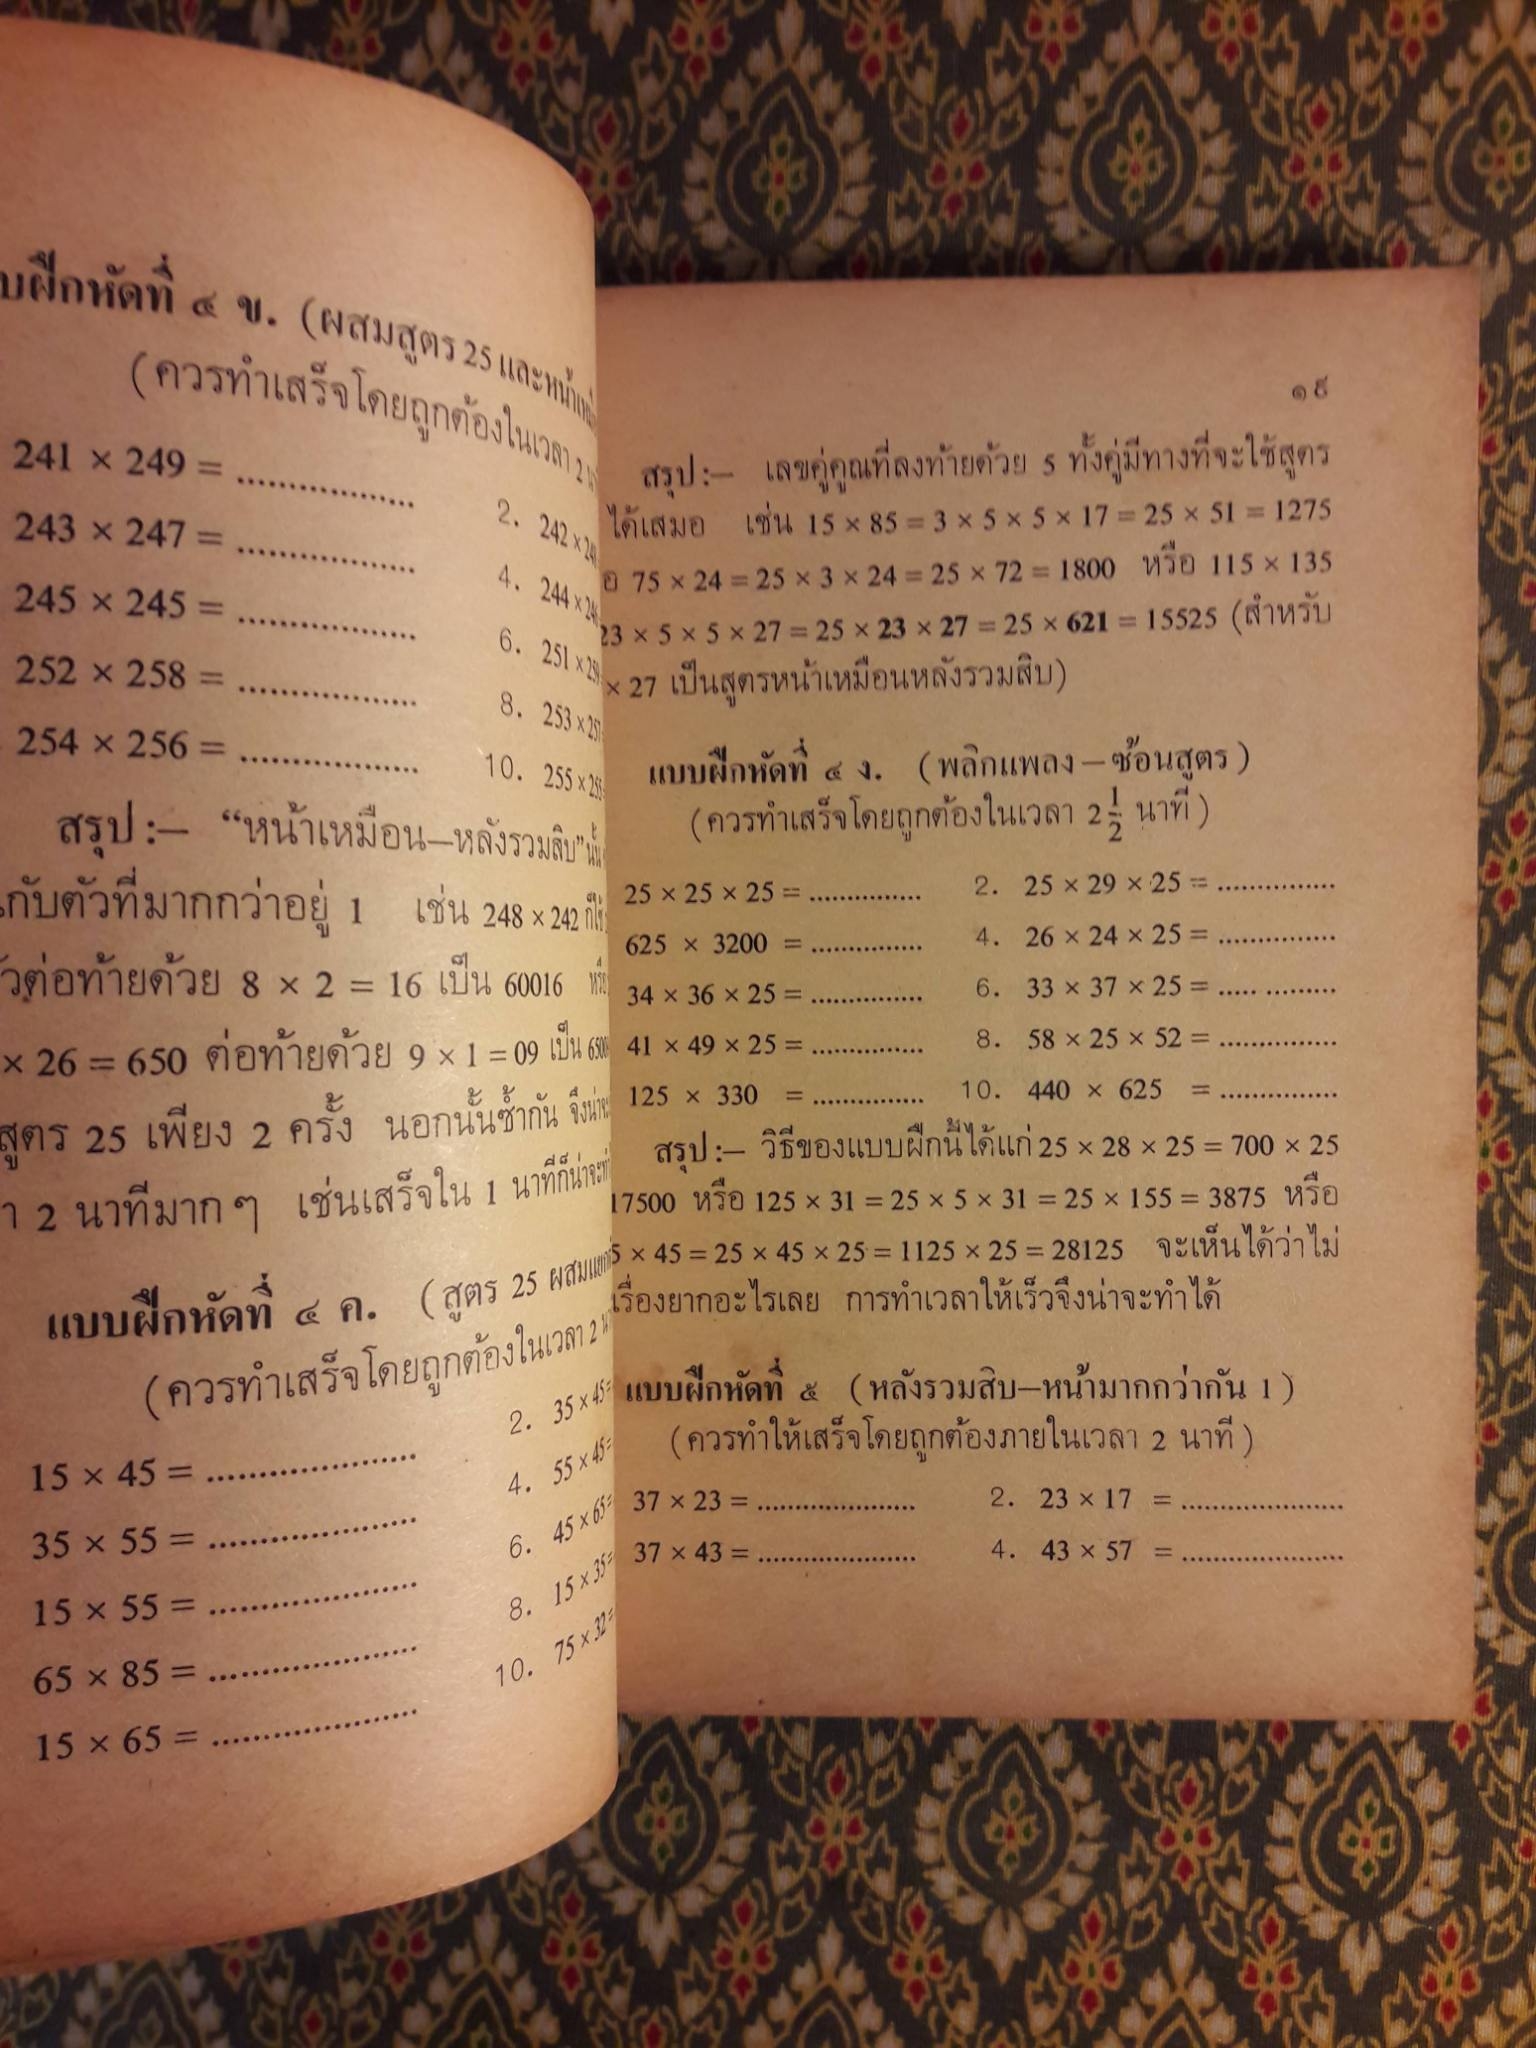 บฝึกหัดที่ ๔ ข. (ผสมสูตร 25 และหน้า
(ควรทำเสร็จโดยถูกต้องในเวลา 2
241 × 249 = ................. 2. 242 × 248
243 × 247 = ................. 4. 244 × 246
245 × 245 = ................. 6. 251 × 259
252 × 258 = ................. 8. 253 × 257
254 × 256 = ................. 10. 255 × 255
สรุป :— “หน้าเหมือน—หลังรวมสิบ” นั้น
กับตัวที่มากกว่าอยู่ 1 เช่น 248 × 242 ก็ใช้
ต่อท้ายด้วย 8 × 2 = 16 เป็น 60016 หรือ
× 26 = 650 ต่อท้ายด้วย 9 × 1 = 09 เป็น
สูตร 25 เพียง 2 ครั้ง นอกนั้นซ้ำกัน จึงน่าจะ
า 2 นาทีมาก ๆ เช่นเสร็จใน 1 นาทีก็น่าจะ
แบบฝึกหัดที่ ๔ ค. (สูตร 25 ผสมแยก
(ควรทำเสร็จโดยถูกต้องในเวลา 2 น
15 × 45 = ..................... 2. 35 × 45 =
35 × 55 = ..................... 4. 55 × 45 =
15 × 55 = ..................... 6. 45 × 65 =
65 × 85 = ..................... 8. 15 × 35 =
15 × 65 = ..................... 10. 75 × 32 =
๑๙
สรุป :— เลขคู่คูณที่ลงท้ายด้วย 5 ทั้งคู่มีทางที่จะใช้สูตร
ได้เสมอ เช่น 15 × 85 = 3 × 5 × 5 × 17 = 25 × 51 = 1275
อ 75 × 24 = 25 × 3 × 24 = 25 × 72 = 1800 หรือ 115 × 135
23 × 5 × 5 × 27 = 25 × 23 × 27 = 25 × 621 = 15525 (สำหรับ
× 27 เป็นสูตรหน้าเหมือนหลังรวมสิบ)
แบบฝึกหัดที่ ๔ ง. (พลิกแพลง—ซ้อนสูตร)
(ควรทำเสร็จโดยถูกต้องในเวลา 2 1/2 นาที)
25 × 25 × 25 = ............... 2. 25 × 29 × 25 = ...............
625 × 3200 = ............... 4. 26 × 24 × 25 = ...............
34 × 36 × 25 = ............... 6. 33 × 37 × 25 = ..... .........
41 × 49 × 25 = ............... 8. 58 × 25 × 52 = ...............
125 × 330 = ............... 10. 440 × 625 = ...............
สรุป :— วิธีของแบบฝึกนี้ได้แก่ 25 × 28 × 25 = 700 × 25
17500 หรือ 125 × 31 = 25 × 5 × 31 = 25 × 155 = 3875 หรือ
5 × 45 = 25 × 45 × 25 = 1125 × 25 = 28125 จะเห็นได้ว่าไม่
เรื่องยากอะไรเลย การทำเวลาให้เร็วจึงน่าจะทำได้
แบบฝึกหัดที่ ๕ (หลังรวมสิบ—หน้ามากกว่ากัน 1)
(ควรทำให้เสร็จโดยถูกต้องภายในเวลา 2 นาที)
37 × 23 = ..................... 2. 23 × 17 = .....................
37 × 43 = ..................... 4. 43 × 57 = .....................